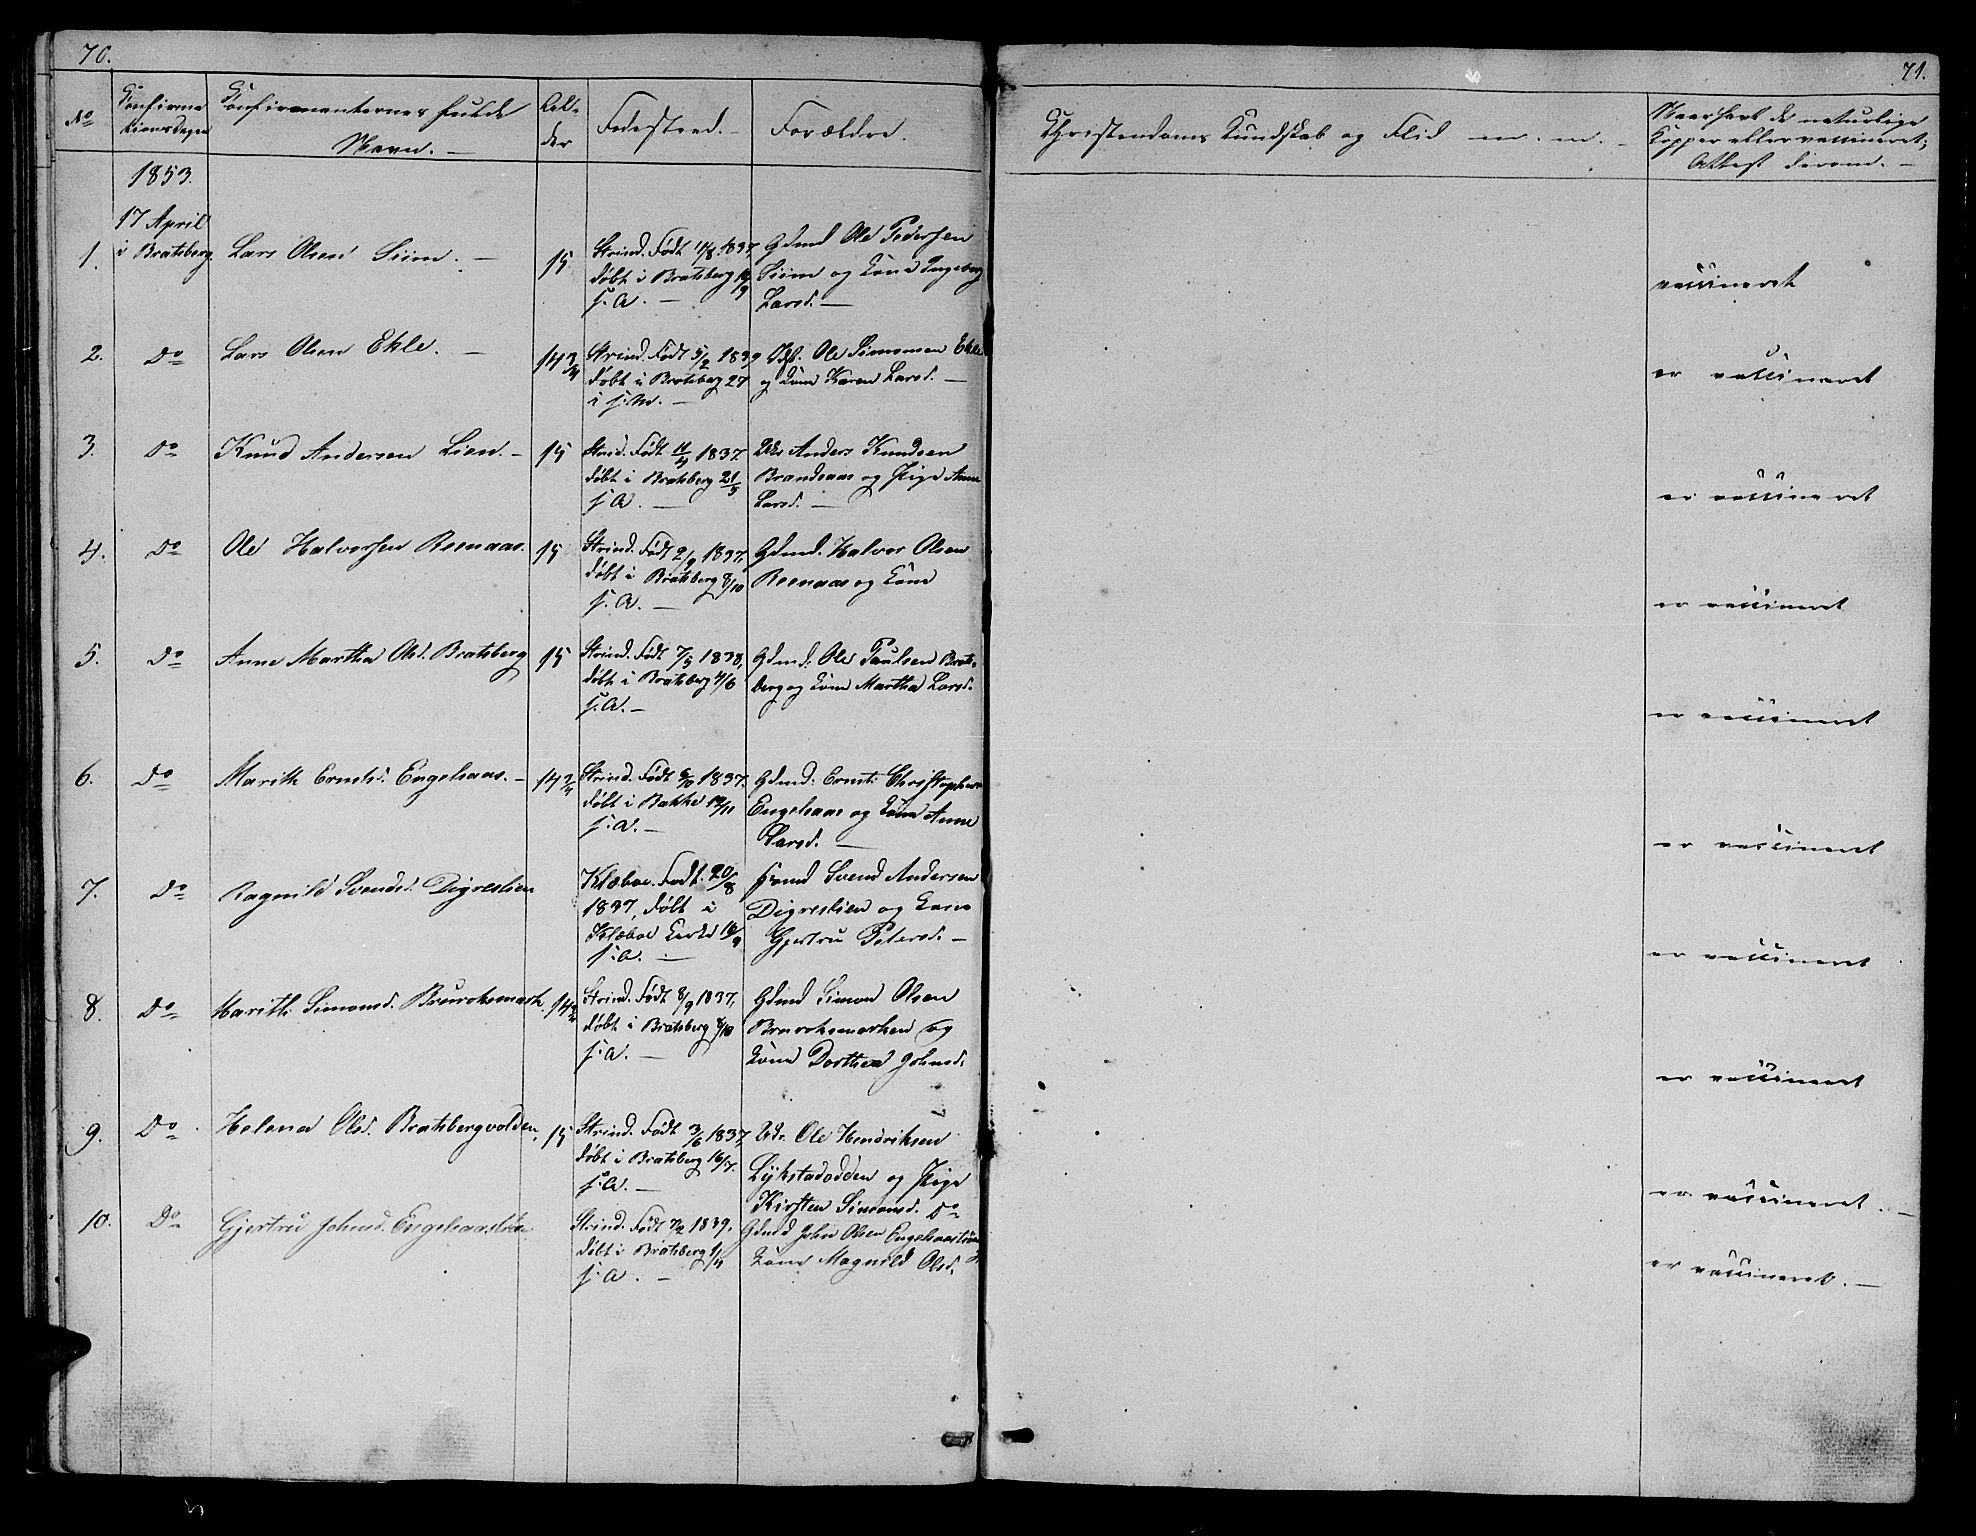 70.
No
Confirma
tionsdagen
Confirmanternes fulde
Navn. —
Al-
der
Fødested. —
Forældre.
1853.
17 April
1. i Bratsberg Lars Olsen Siim. — 15
Strind. Født 11/8 1837,
døbt i Bratsberg
s. A. —
Gdmd Ole Pedersen
Siim og Kone Ingeborg
Larsd. —
2. Do Lars Olsen Ekle. — 14 3/4
Strind. Født 5/2 1839
døbt i Bratsberg 27
i s. M. —
Ole Simonsen Ekle
og Kone Karen Larsd. —
3. Do Knud Andersen Lien. — 15
Strind. Født 1837.
døbt i Bratsberg 21/5
s. A. —
Anders Knudsen
Brandsaas og Pige Anne
Larsd. —
4. Do Ole Halvorsen Reenaas. 15
Strind. Født 2/9 1837,
døbt i Bratsberg 8/10
s. A. —
Gdmd. Halvor Olsen
Reenaas og Kone
5. Do Anne Martha Olsd. Bratsberg 15
Strind. Født 7/5 1838,
døbt i Bratsberg 4/6
s. A. —
Gdmd. Ole Paulsen Brats-
berg og Kone Martha Larsd.
6. Do Marith Erntsd. Engelsaas. — 14 2/4
Strind. Født 1837.
døbt i Bakke 12/11
s. A. —
Gdmd. Ernt Christophersen
Engelsaas og Kone Anne
Larsd. —
7. Do Ragnild Svendsd. Digreslien
Klæboe. Født. 20/8
1837, døbt i
Klæboe Kirke
s. A. —
Svend Andersen
Digreslien og Kone
Gjertru Petersd. —
8. Do Marith Simonsd. Bruroksmark. 14
Strind. Født 8/9 1837,
døbt i Bratsberg 8/10
s. A. —
Gdmd Simon Olsen
Bruroksmarken og
Kone Dorthea Johnsd.
9. Do Helena Olsd. Bratsbergvolden, 15
Strind. Født 3/6 1837,
døbt i Bratsberg 16/7.
s. A. —
Ole Hendriksen
Lykstadødden og Pige
Kirsten Simonsd. Do
10. Do Gjertru Johnsd. Engelsaastrøen
Strind. Født 1839,
døbt i Bratsberg 1/4
s. A. —
Gdmd John Olsen Engelsaastrøen
Kone Magnild Olsd.
71.
Christendoms Kundskab og Flid m. m. —
Naar havt de naturlige
Kopper eller vaccineret;
Attest derom. —
vaccineret
er vaccineret
er vaccineret
er vaccineret
er vaccineret
er vaccineret
er vaccineret
er vaccineret
er vaccineret. —
er vaccineret. —